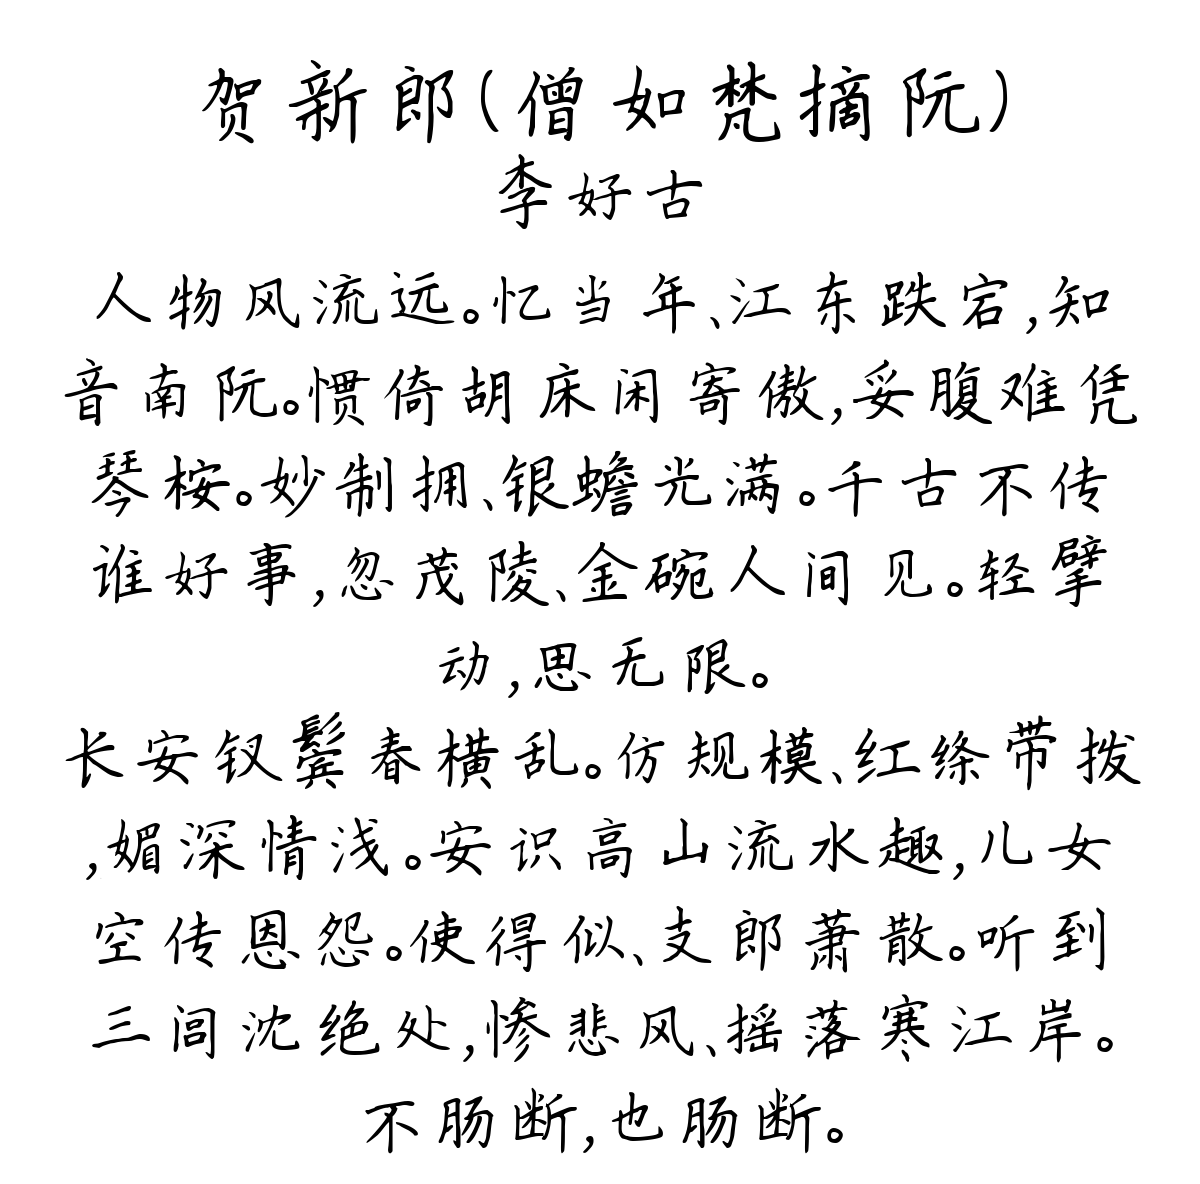 贺新郎(僧如梵摘阮)
李好古
人物风流远。忆当年、江东跌宕,知
音南阮。惯倚胡床闲寄傲,妥腹难凭
琴桉。妙制拥、银蟾光满。千古不传
谁好事,忽茂陵、金碗人间见。轻擘
动,思无限。
长安钗鬓春横乱。仿规模、红绦带拨
,媚深情浅。安识高山流水趣,儿女
空传恩怨。使得似、支郎萧散。听到
三闾沈绝处,惨悲风、摇落寒江岸。
不肠断,也肠断。